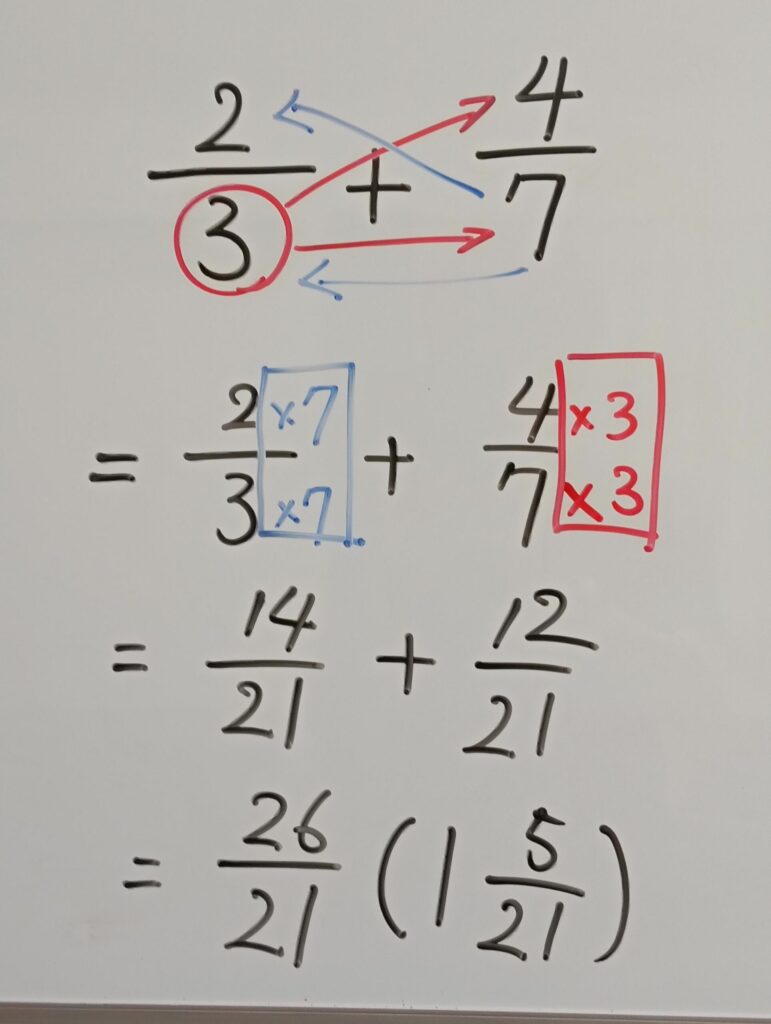 2/3 + 4/7
= 2×7/3×7 + 4×3/7×3
= 14/21 + 12/21
= 26/21 (1 5/21)